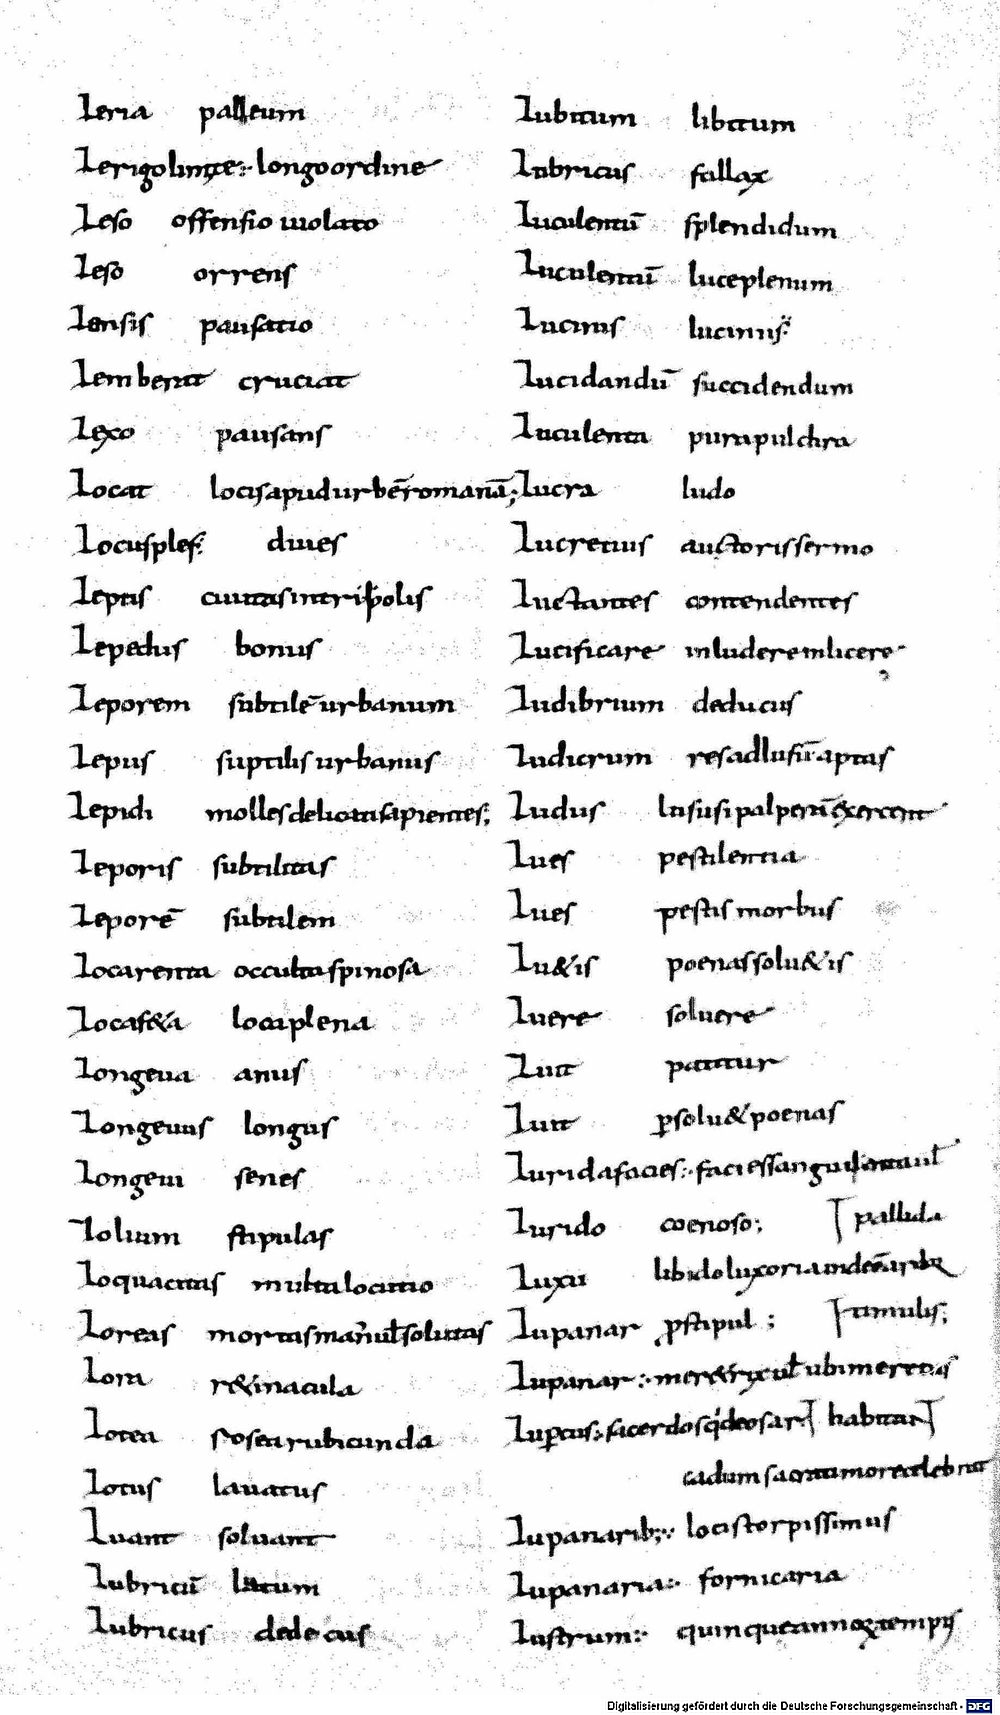 Leria palleum
Lerigolinge longo ordine
Leso offensio uiolato
Leso orrens
Lensis pausatio
Lemberat cruciat
Lexo pausans
Locat locis apud urbē romanā;
Locusples: diues
Leptis ciuitas in tripolis
Lepedus bonus
Leporem subtilē urbanum
Lepus suptilis urbanus
Lepidi molles delicati sapientes;
Leporis subtilitas
Leporē subtilem
Locarenta occulta spinosa
Locaf&a loca plena
Longeua anus
Longeuus longus
Longeui senes
Lolium stipulas
Loquacitas multa locutio
Loreas mortas
Lora r&inacula
Lotea rosea rubicunda
Lotus lauatus
Luant soluant
Lubricū
Lubricus dedecus
Lubitum libitum
Lubricus fallax
Luculentū splendidum
Luculentū luce plenum
Lucinus lucinius
Lucidandū succidendum
Luculenta pura pulchra
Lucra ludo
Lucretius auctoris sermo
Luctantes contendentes
Lucificare inludere inlicere
Ludibrium deducus
Ludicrum res ad lusū aptas
Ludus exercent
Lues pestilentia
Lues pestis morbus
Lu&is poenas solu&is
Luere soluere
Luit patitur
Luit p̱solu&poenas
Lurida facies: facies
Lurido coenoso; pallida
Luxu libido luxoria
Lupanar tumulis;
Lupanar: ubi meretrix
Luꝑcus: sacerdos habitat
celebrat
Lupanarib;: locis torpissimus
Lupanaria: fornicaria
Lustrum: quinque
Digitalisierung gefördert durch die Deutsche Forschungsgemeinschaft - DFG